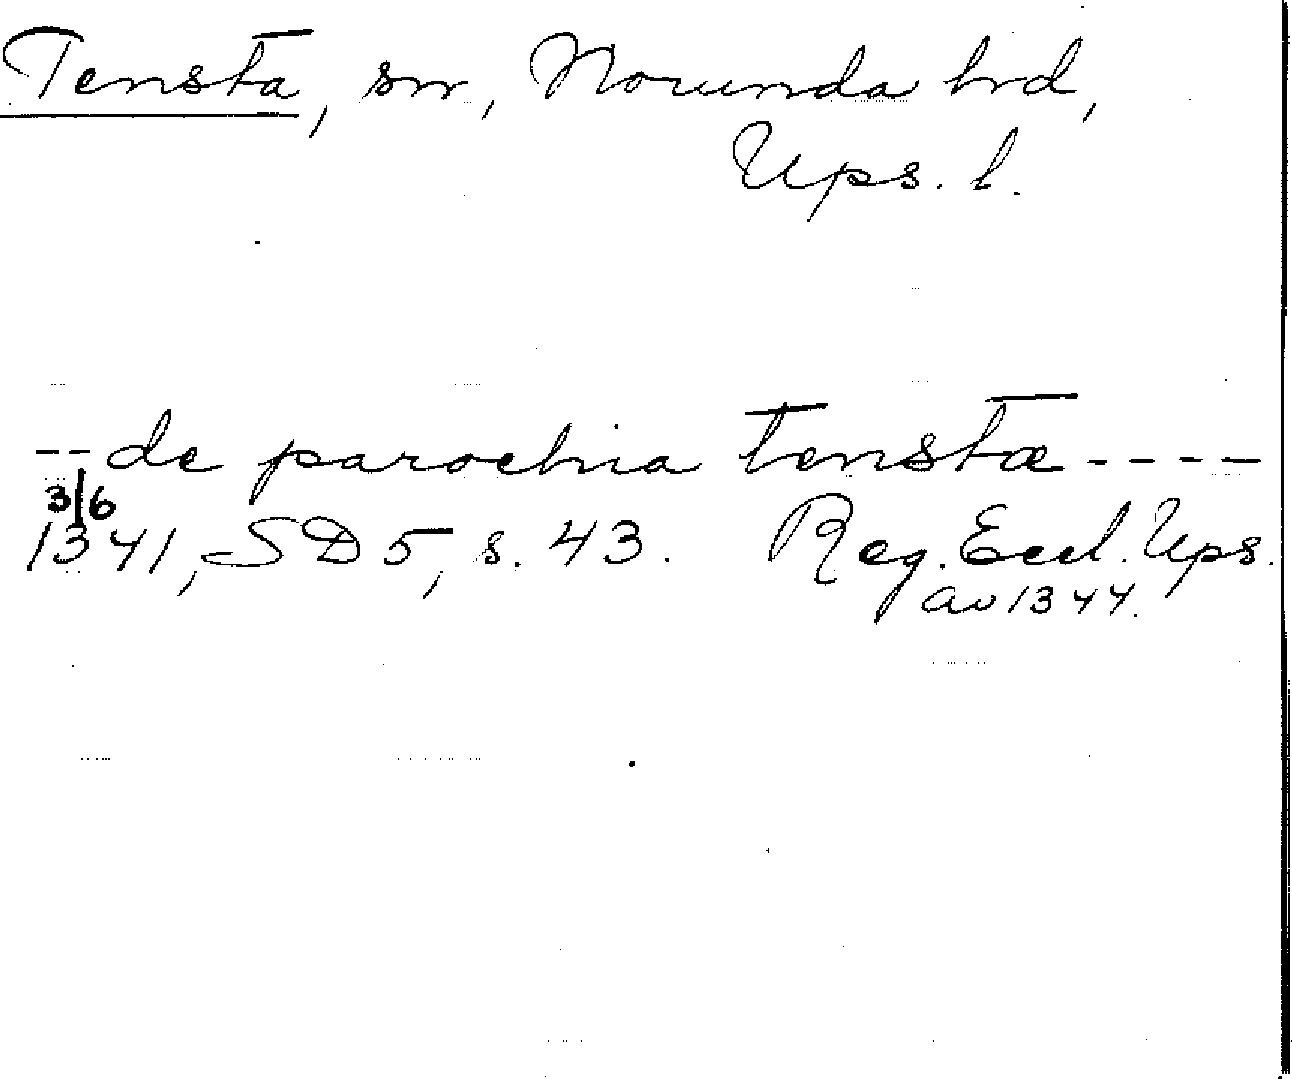 Tensta, sn, Norunda hrd,
Ups. l.
-- de parochia tenstæ ----
3/6
1341, SD 5, s. 43. Reg. Eccl. Ups.
av 1344.